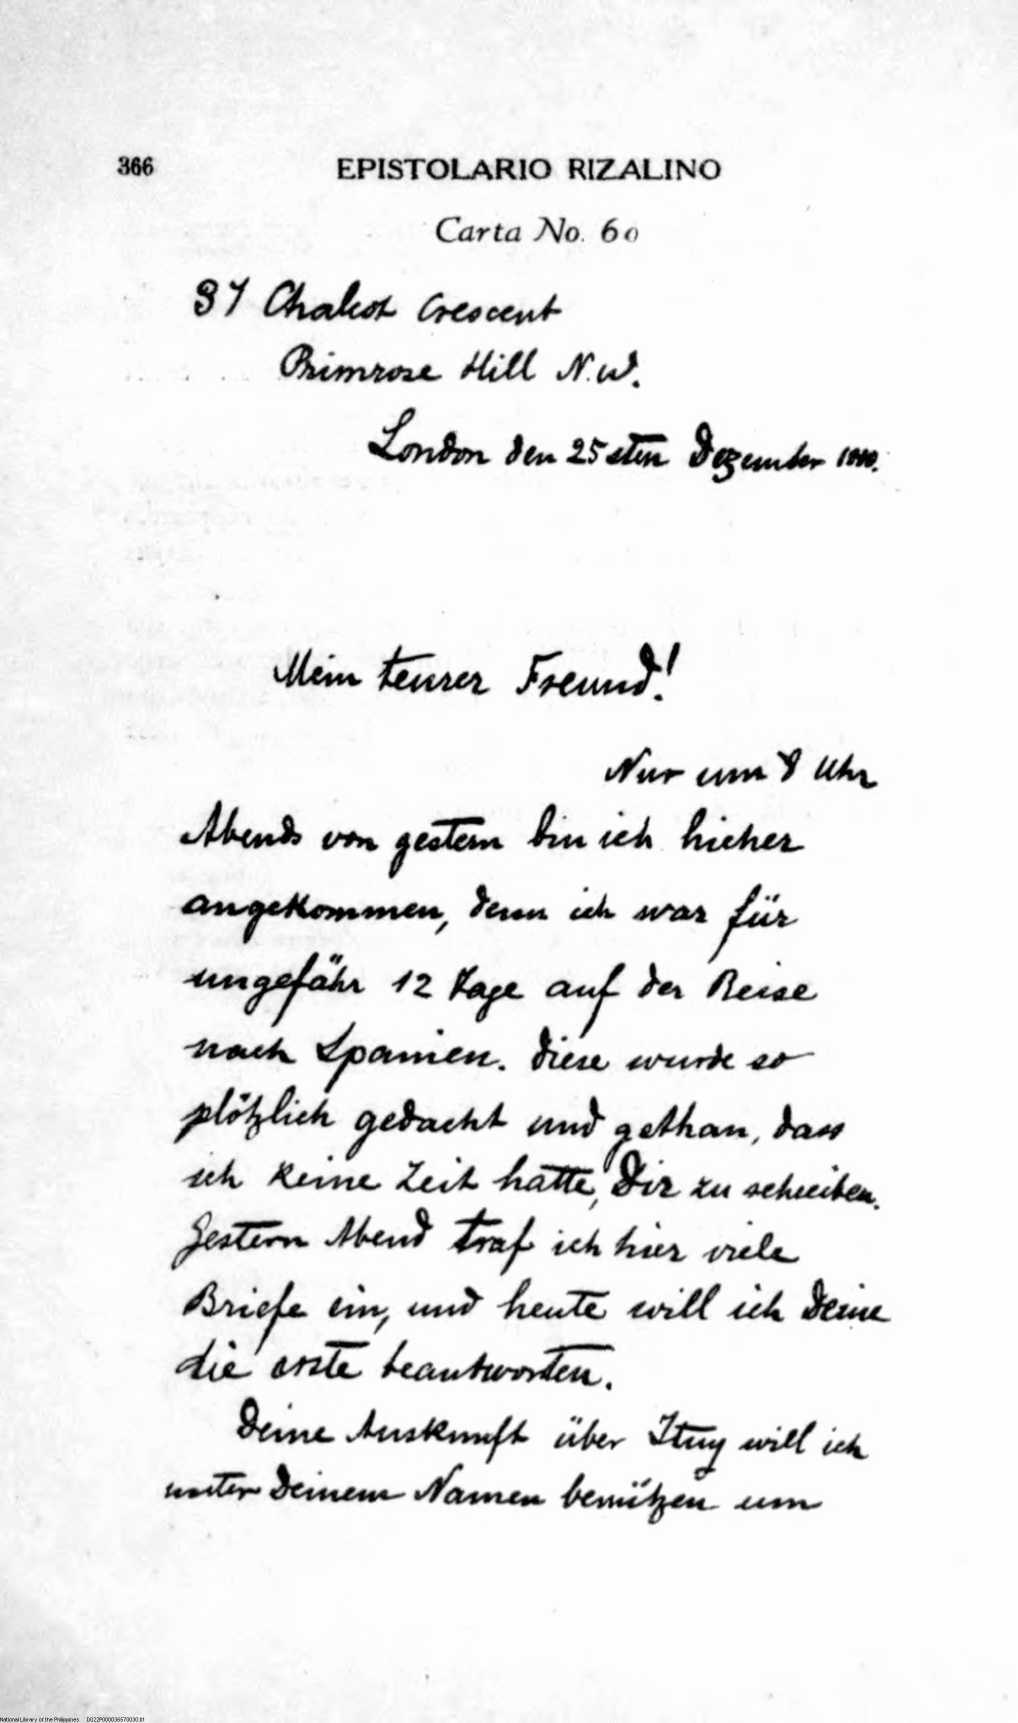 366 EPISTOLARIO RIZALINO
Carta No. 60
37 Chalcot Crescent
Primrose Hill N.W.
London den 25sten Dezember 1888.
Mein teurer Freund!
Nur um 8 Uhr
Abends von gestern bin ich hieher
angekommen, denn ich war für
ungefähr 12 Tage auf der Reise
nach Spanien. Diese wurde so
plötzlich gedacht und gethan, dass
ich keine Zeit hatte, Dir zu schreiben.
Gestern Abend traf ich hier viele
Briefe ein, und heute will ich Deine
die erste beantworten.
Deine Auskunft über Ituy will ich
unter Deinem Namen benützen um
National Library of the Philippines